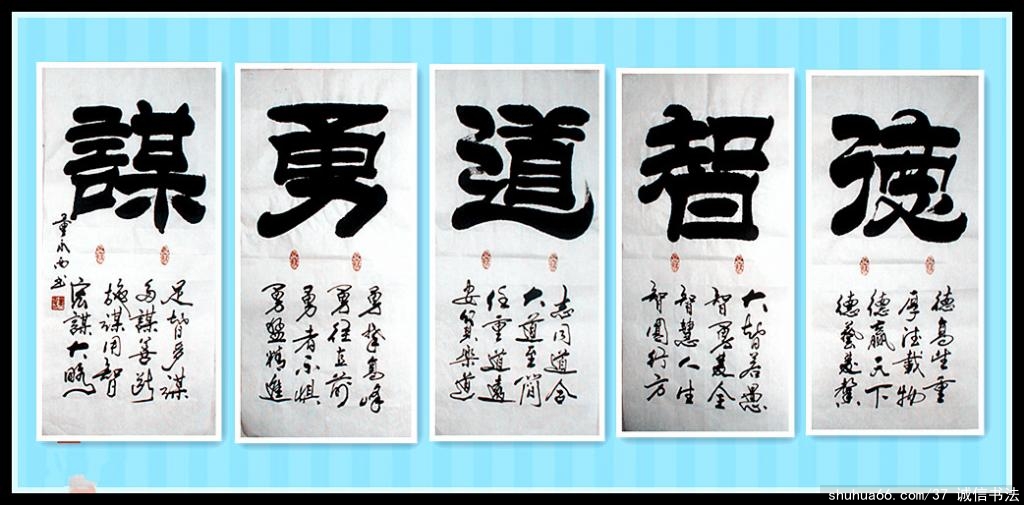 德
德高望重
厚德載物
德贏天下
德藝双馨
智
大智若愚
智勇双全
智慧人生
智圆行方
道
志同道合
大道至簡
任重道遠
安貧樂道
勇
勇攀高峰
勇往直前
勇者不惧
勇猛精進
謀
足智多謀
多謀善断
施謀用智
宏謀大略
shuhua66.com/37 诚信书法